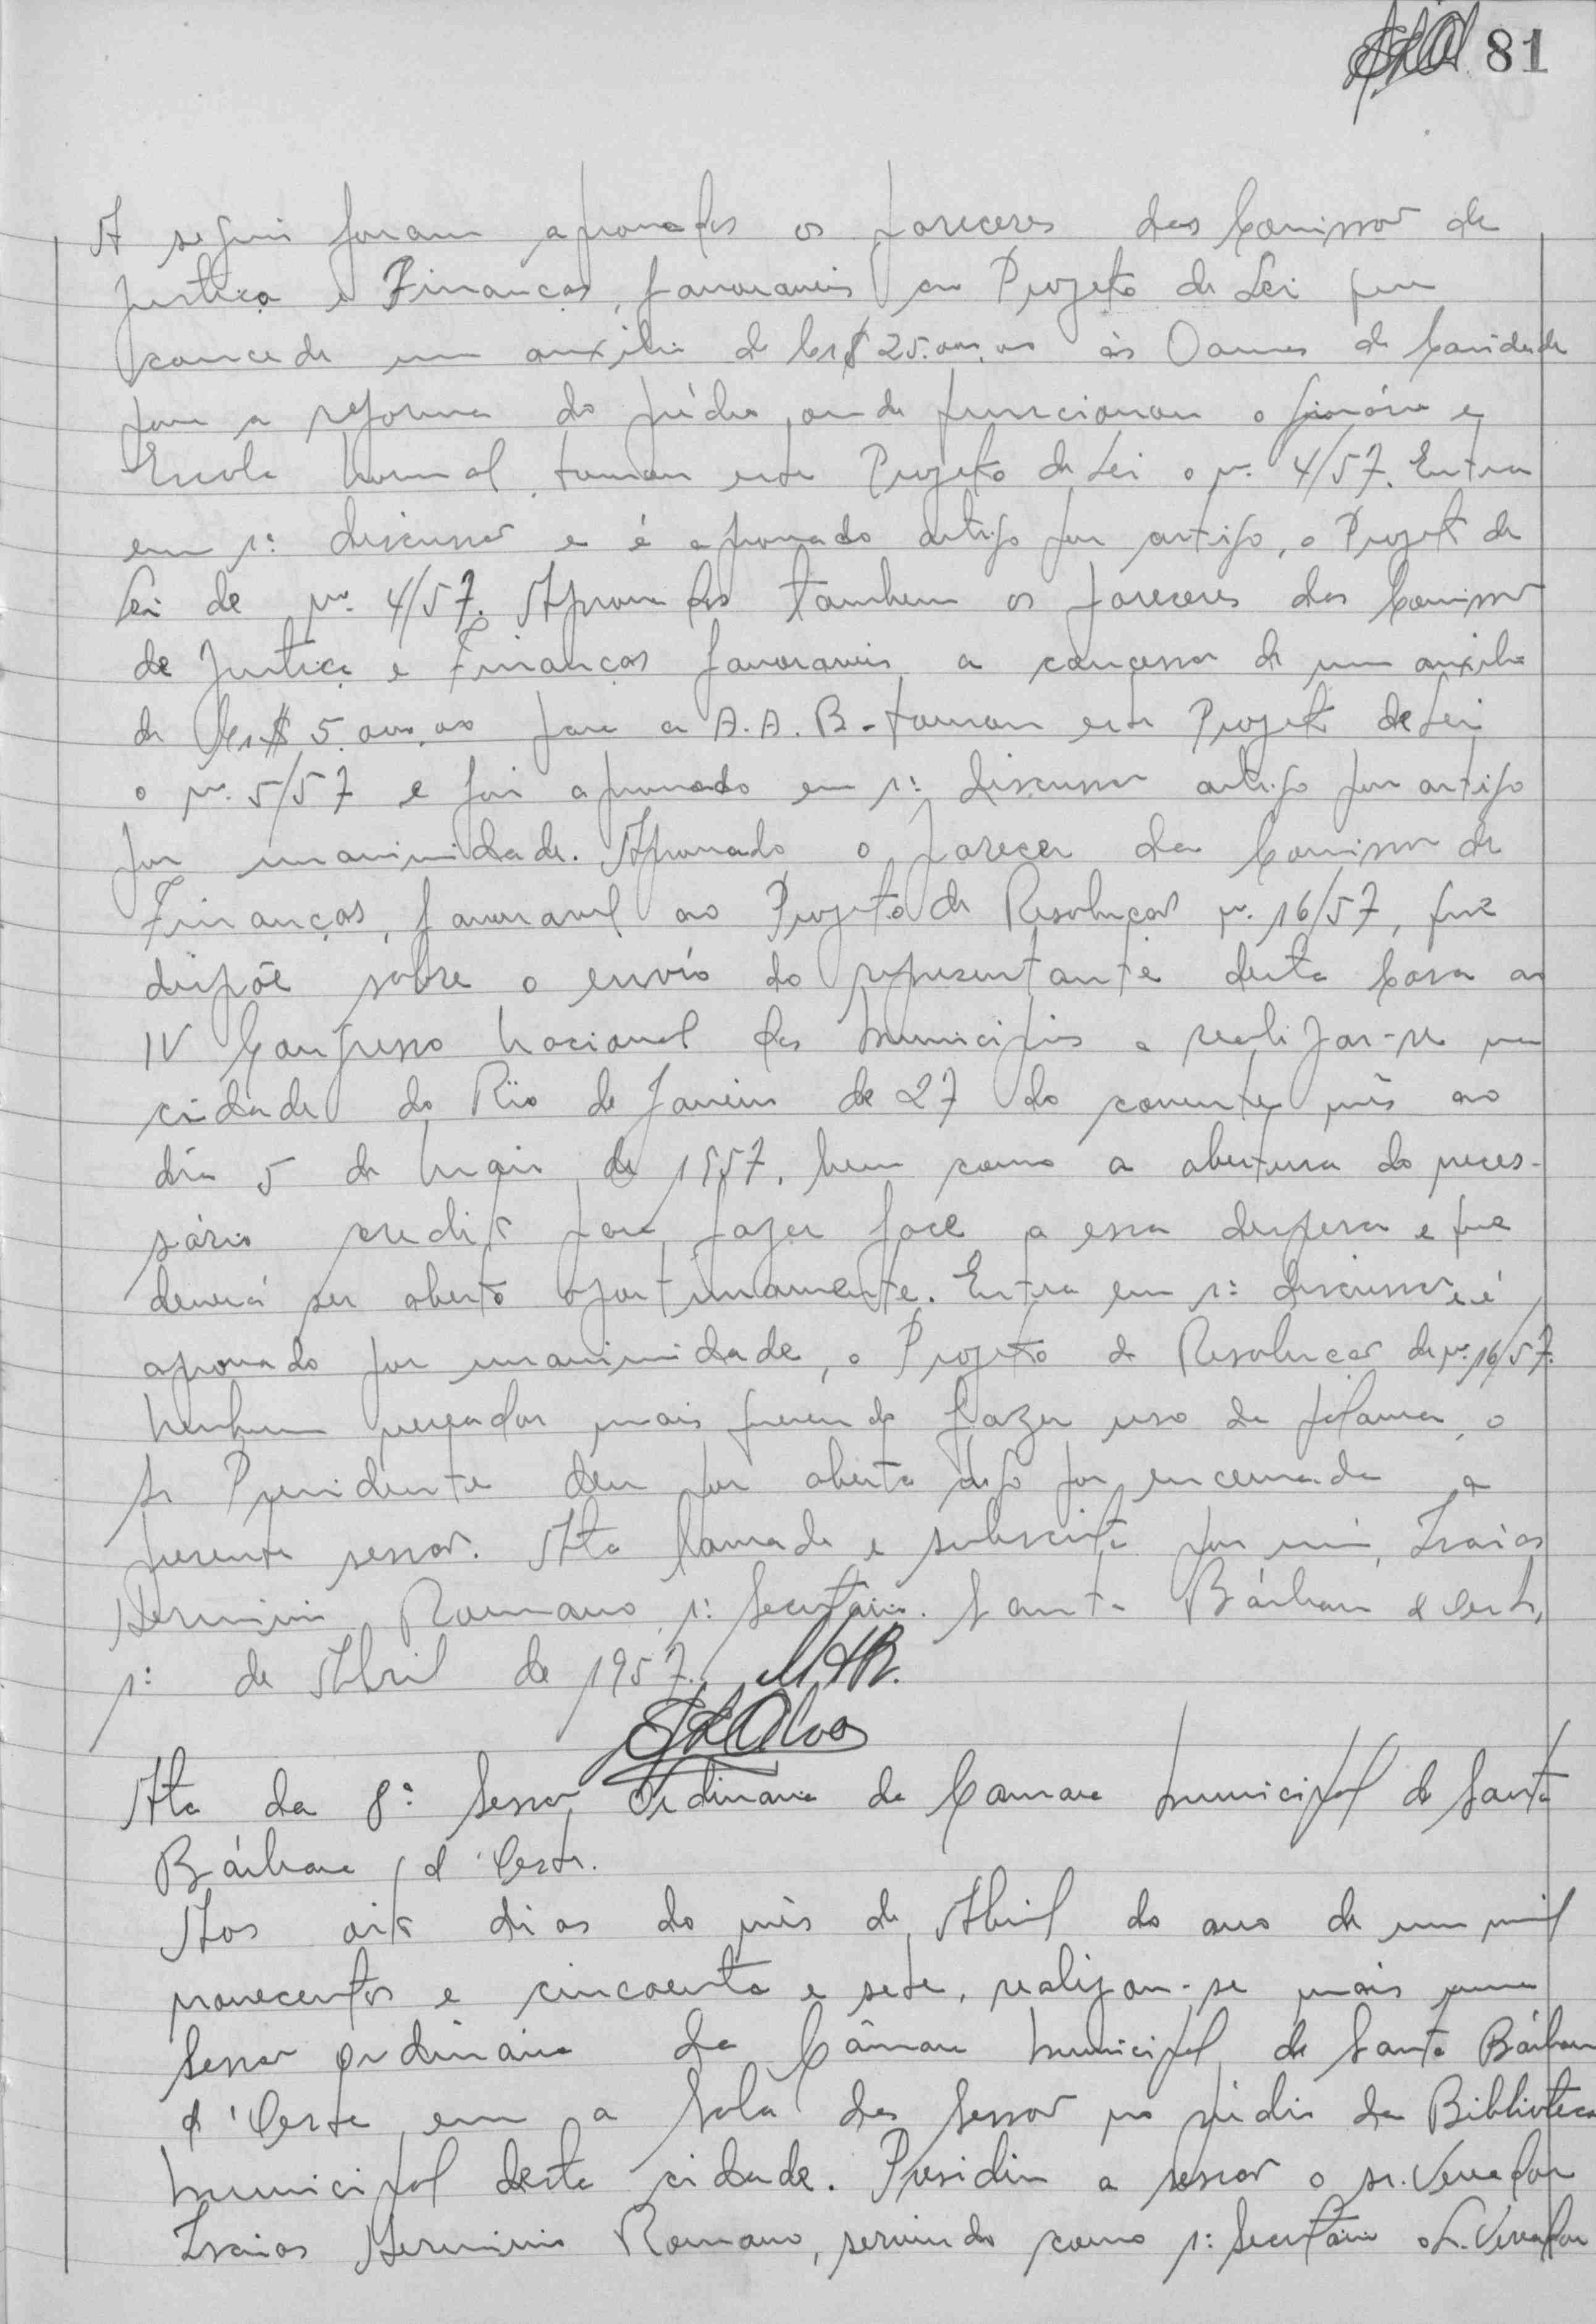 81
A seguir foram aprovados os pareceres das Comissões de
Justiça e Finanças, favoraveis ao Projeto de Lei que
concede um auxilio de Cr$ 25.000,00 às Damas de Caridade
para a reforma do prédio onde funcionam o ginásio e
Escola Normal, tomou este Projeto de Lei o nº 4/57. Entra
em 1ª discussão e é aprovado artigo por artigo, o Projeto de
Lei de nº 4/57. Aprovados tambem os pareceres das Comissões
de Justiça e Finanças favoraveis a concessão de um auxilio
de Cr$ 5.000,00 para a A.A.B. - tomou este Projeto de Lei
o nº 5/57 e foi aprovado em 1ª discussão artigo por artigo
por unanimidade. Aprovado o parecer da Comissão de
Finanças, favoravel ao Projeto de Resolução nº 16/57, que
dispõe sobre o envio do representante desta Casa ao
IV Congresso Nacional dos Municipios a realizar-se na
cidade do Rio de Janeiro de 27 do corrente mês ao
dia 5 de Maio de 1957, bem como a abertura do neces-
sário credito para fazer face a essa despesa e que
deverá ser aberto oportunamente. Entra em 1ª discussão e é
aprovado por unanimidade, o Projeto de Resolução de nº 16/57.
Nenhum vereador mais querendo fazer uso da palavra, o
Sr Presidente deu por aberta digo por encerrada a
presente sessão. Ata lavrada e subscrita por mim, Isaias
Herminio Romano, 1º Secretário. Santa Bárbara d'Oeste,
1º de Abril de 1957.
Ata da 8ª Sessão Ordinaria da Camara Municipal de Santa
Bárbara d'Oeste.
Aos oito dias do mês de Abril do ano de um mil
novecentos e cincoenta e sete, realizou-se mais uma
Sessão Ordinária da Câmara Municipal de Santa Bárbara
d'Oeste em a Sala das Sessões no prédio da Biblioteca
Municipal desta cidade. Presidiu a sessão o sr. Vereador
Isaias Herminio Romano, servindo como 1º Secretário o Sr. Vereador